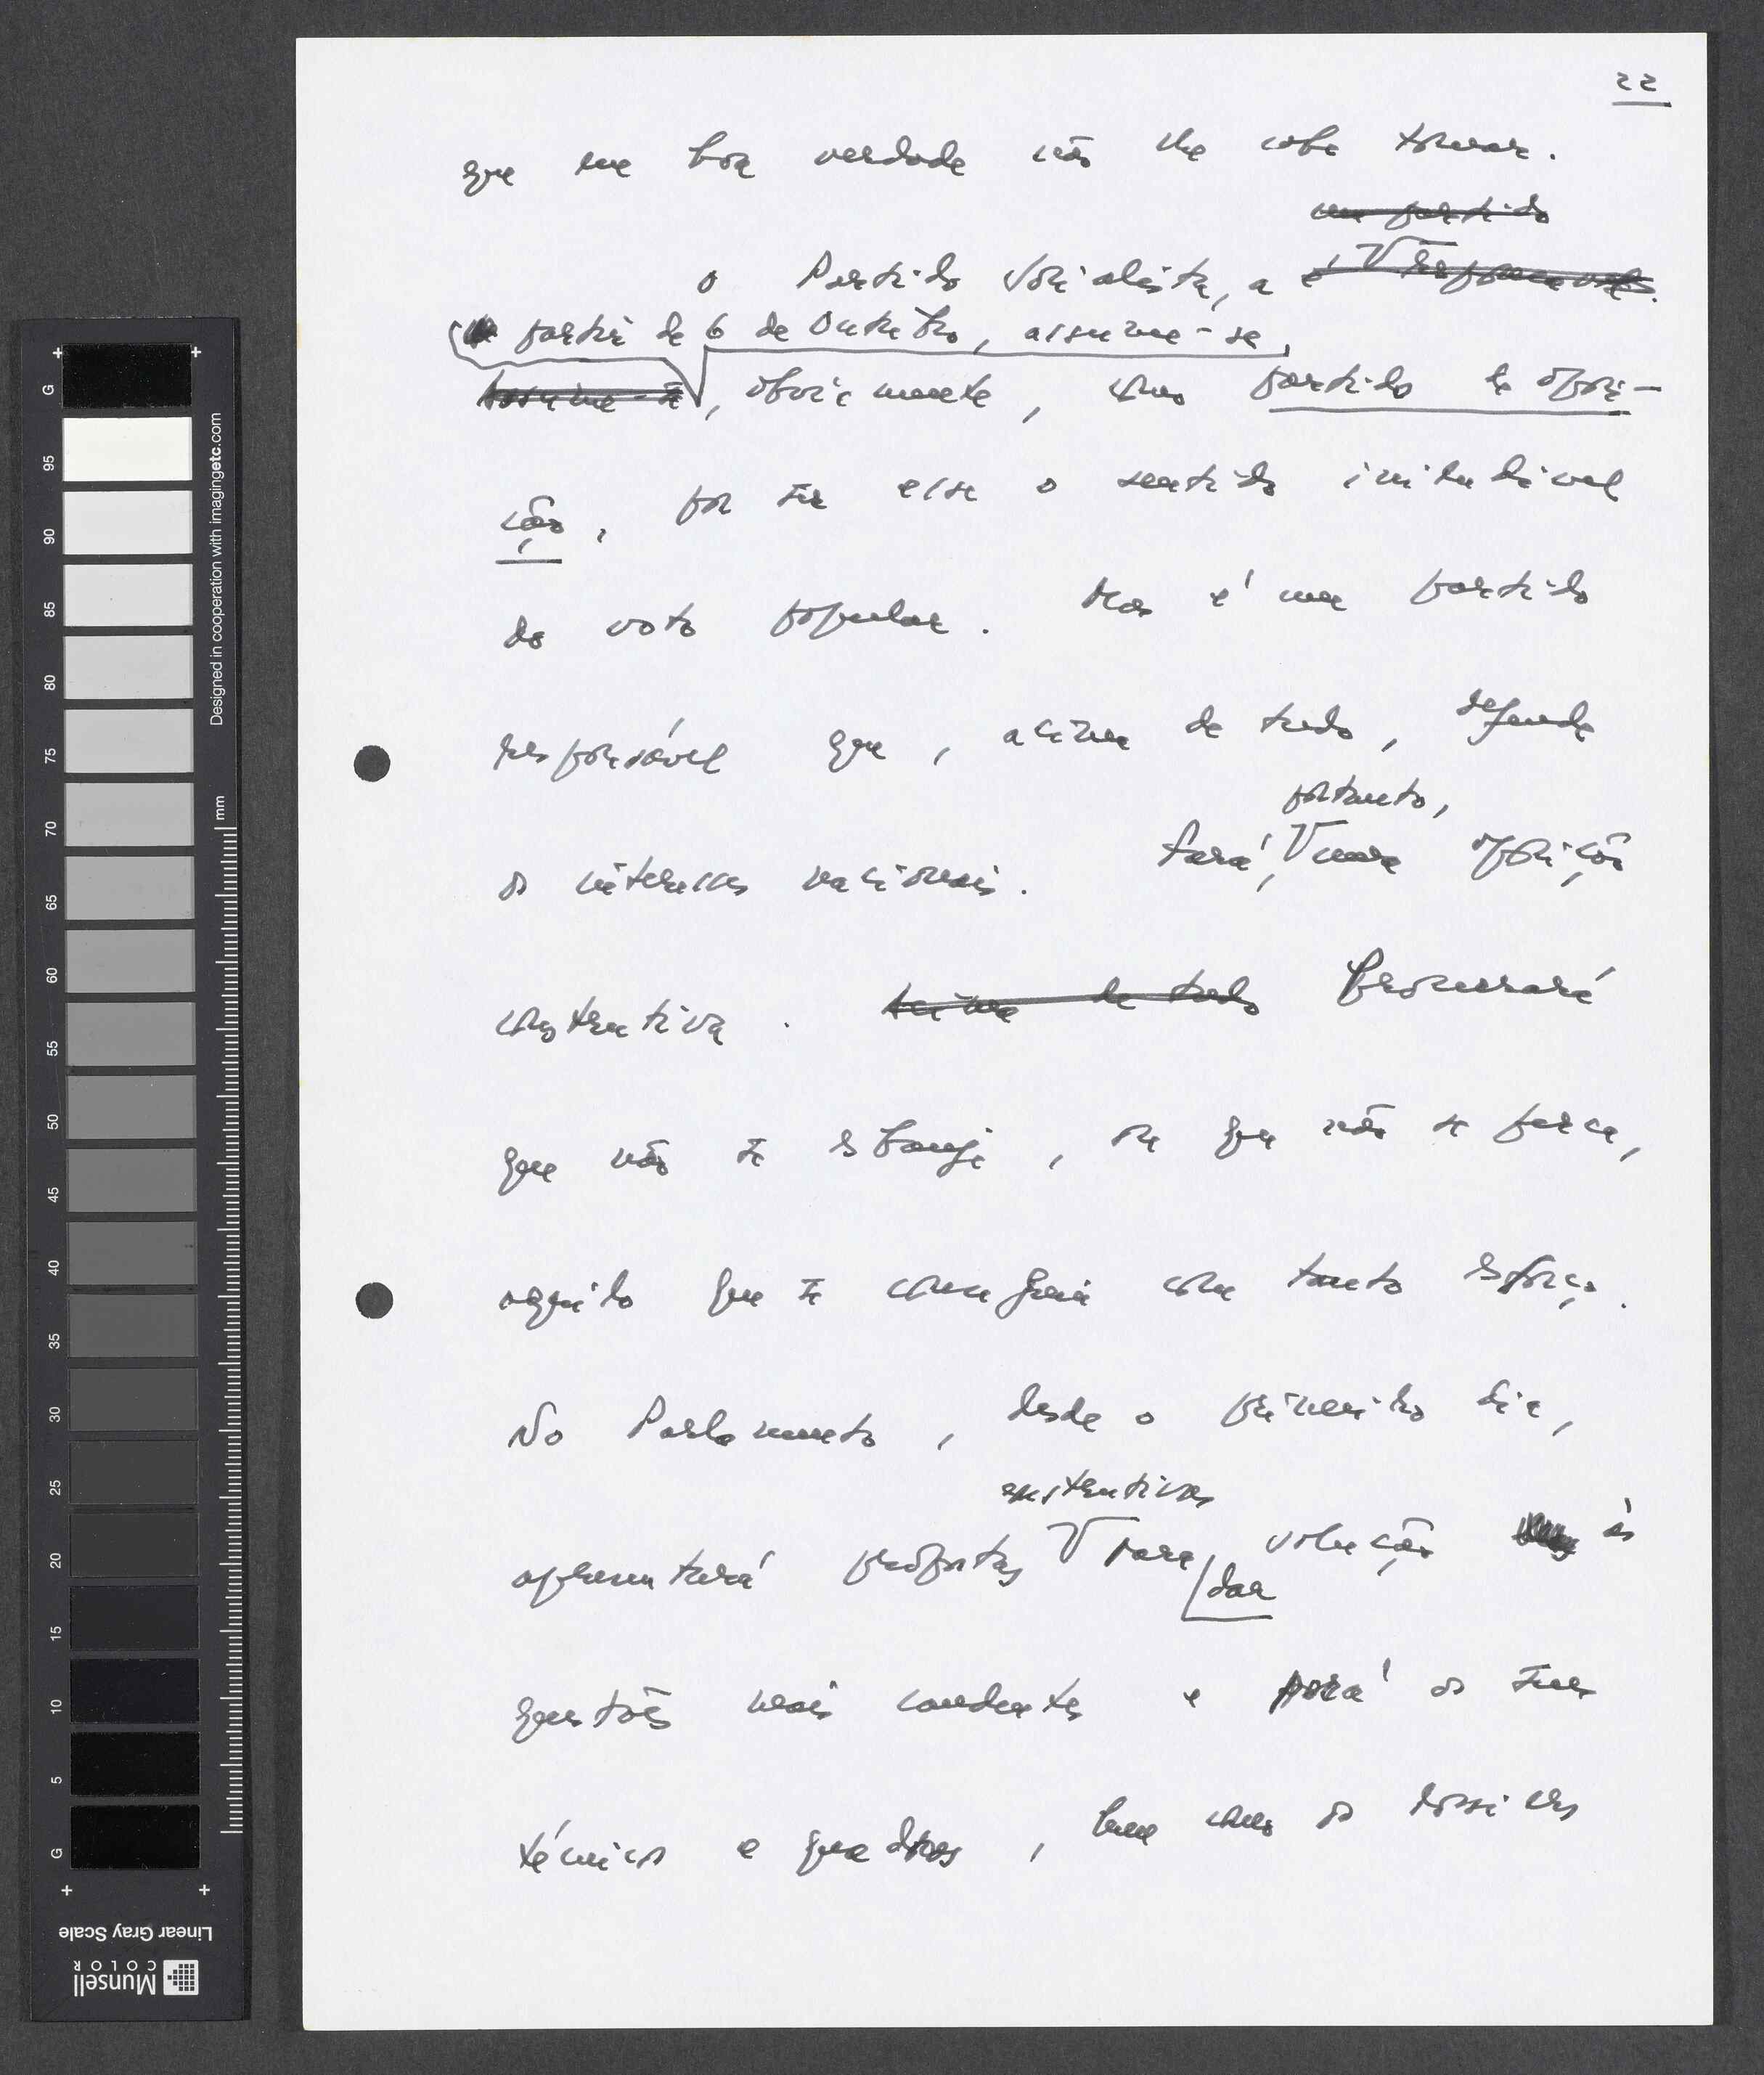 22
que em boa verdade não lhe cabe tomar.
um partido
O Partido Socialista, a é responsável.
partir de 6 de Outubro, assume-se,
Assume-se, obviamente, como partido de oposi-
ção, por ser esse o sentido iniludível
do voto popular. Mas é um partido
responsável que, acima de tudo, defende
portanto,
os interesses nacionais. Fará, uma oposição
construtiva. Acima de tudo Procurará
que não se esbanje, ou que não se perca,
aquilo que se conseguiu com tanto esforço.
No Parlamento, desde o primeiro dia,
construtivas
apresentará propostas para solução às
dar
questões mais candentes e porá os seus
técnicos e quadros, bem como os dossiers
G
95
90
85
80
75
70
65
60
55
50
45
40
35
30
25
20
15
10
5
G
mm
Designed in cooperation with imagingetc.com
Linear Gray Scale
Munsell
COLOR